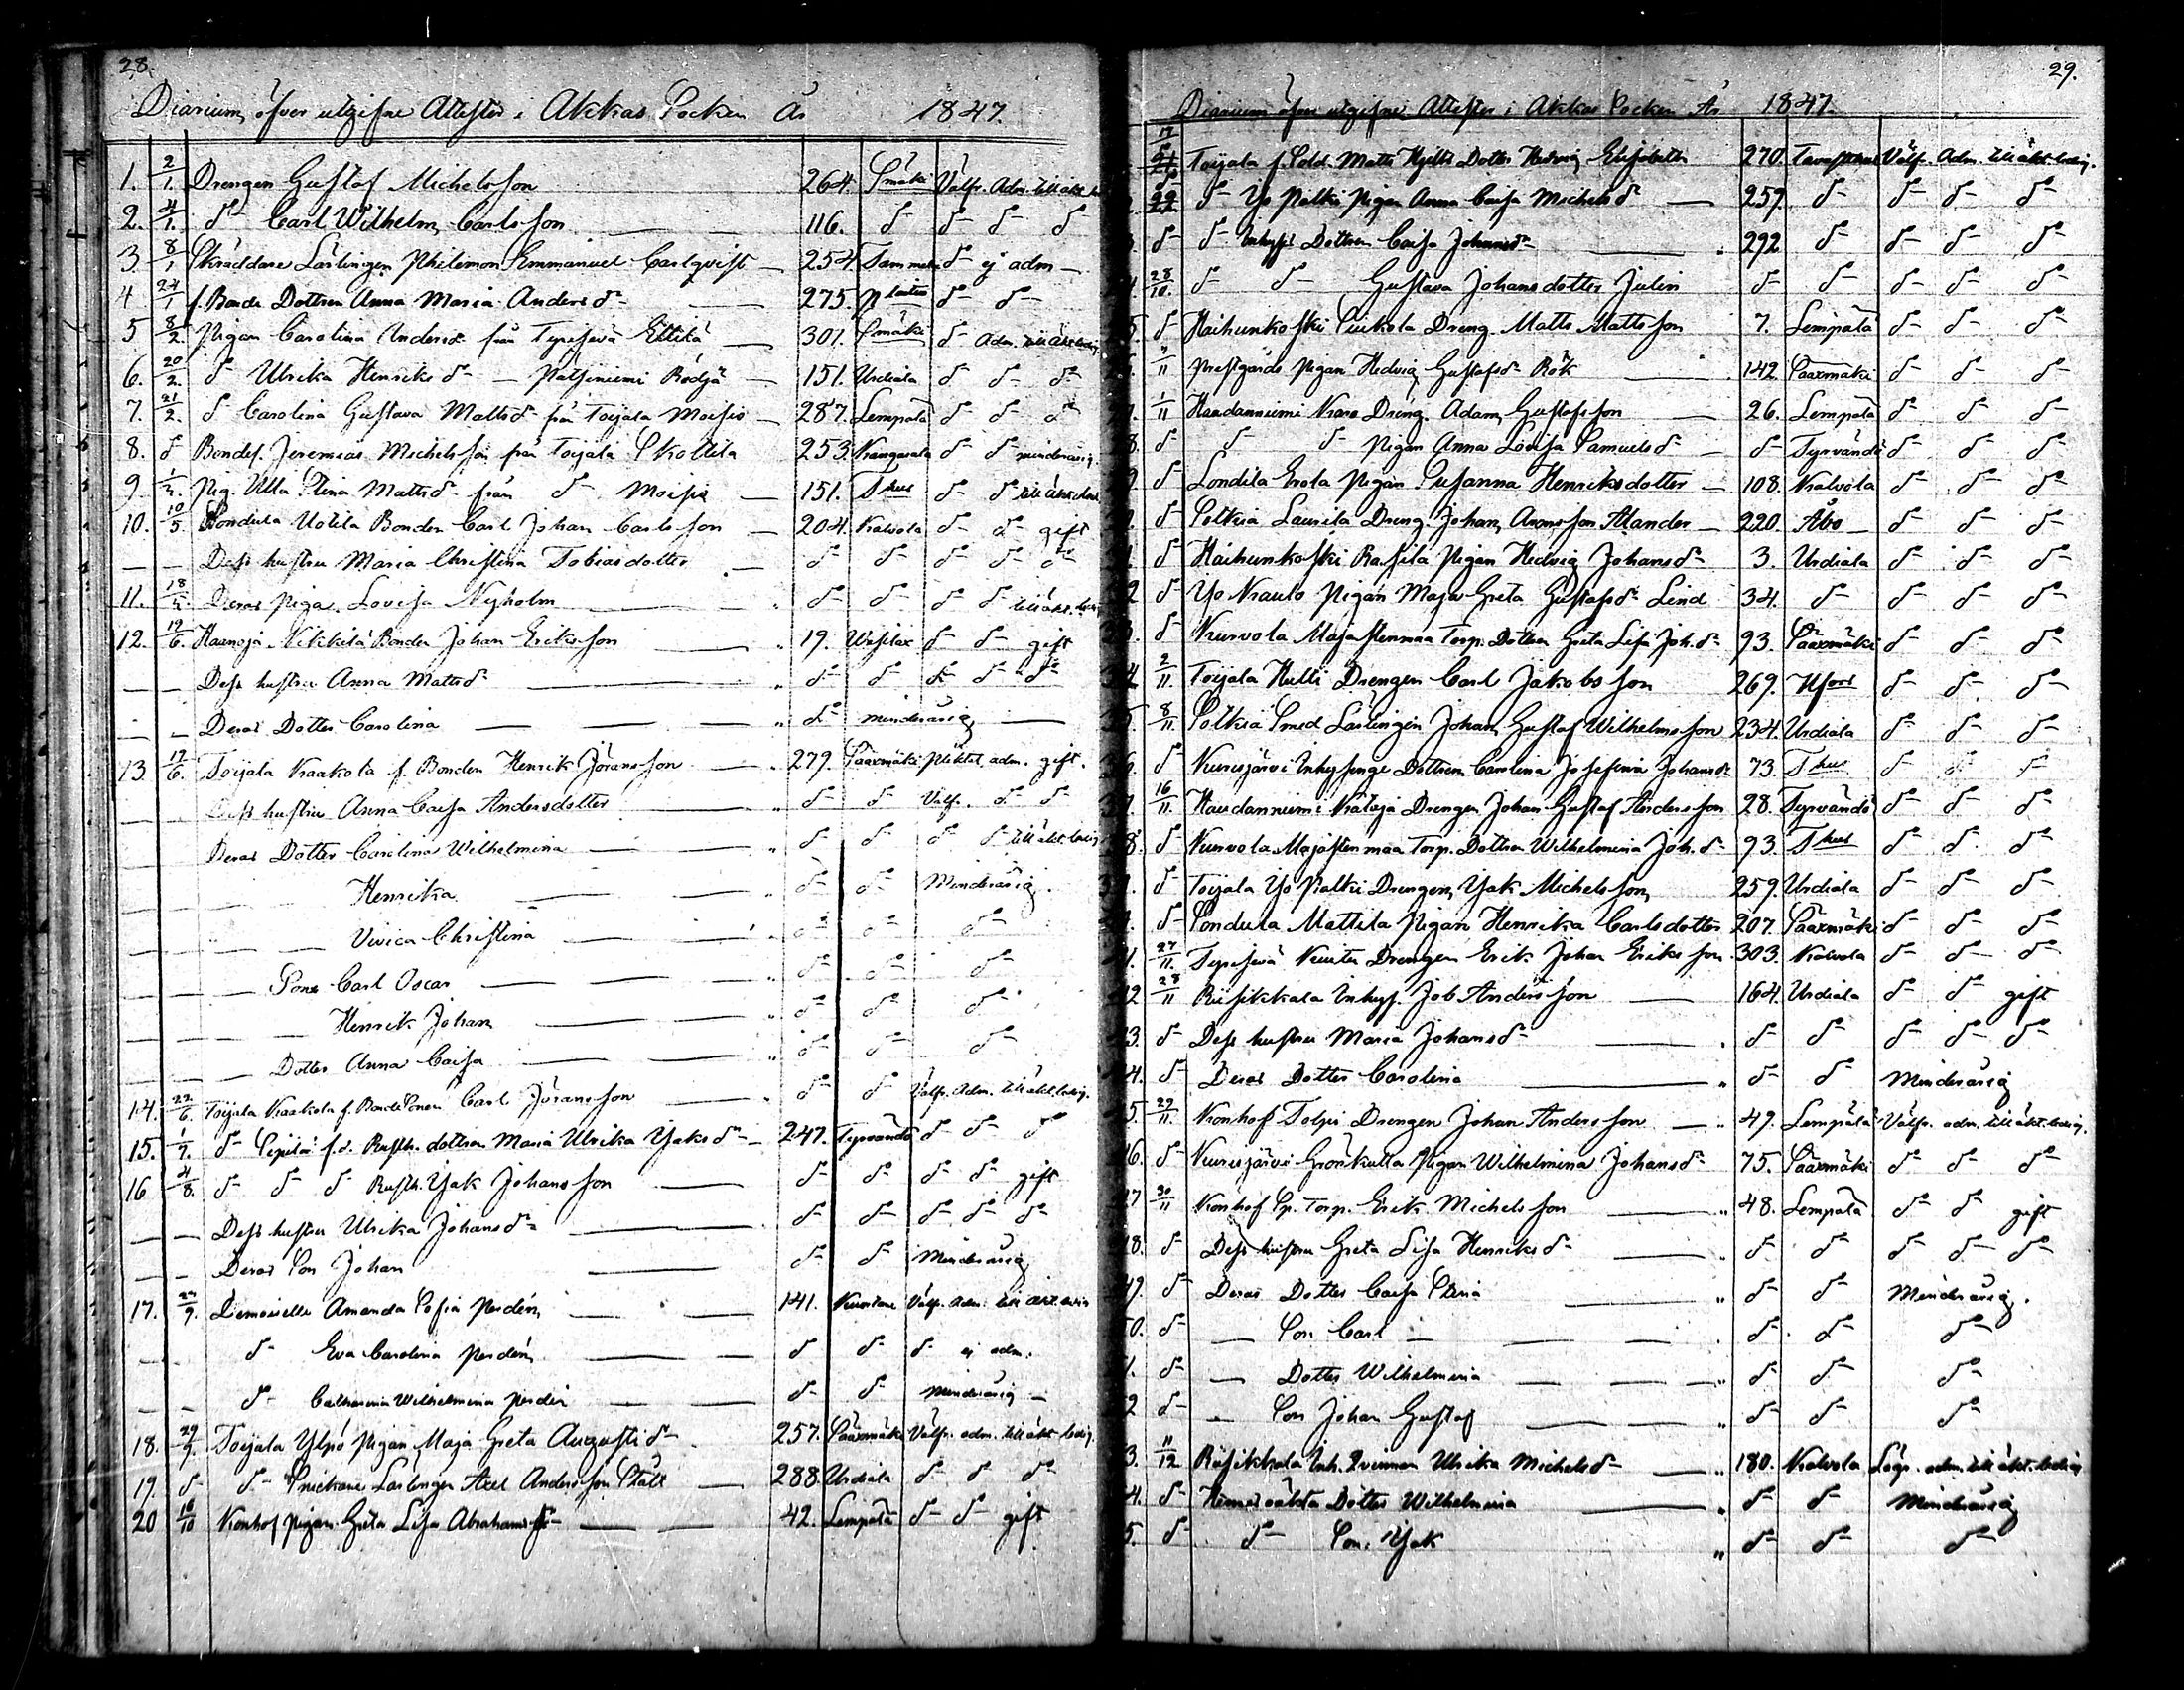 28.
Diarium öfver utgifne Attester i Akkas Socken År 1847.
1. 2/1. Drengen Gustaf Michelsson 264. Smäki Välfr. Adm. till äkt.
2. 4/1. do Carl Wilhelm Carlsson 116. do do do do
3. 8/1 Skräddare Lärlingen Philemon Emmanuel Carlqvist 254. do ej adm
4 24/1 f. Bonde Dottren Anna Maria Andersdr 275. do do
5 8/2. Pigan Carolina Andersdr från Terisevä Ettilä 301. Smäki do Adm. till äkt. ledig
6. 20/2. do Ulrika Henriksdr Patsiniemi Rödjä 151. Urdiala do do do
7. 21/2. do Carolina Gustava Mattsdr från Toijala Moisio 287. Lempälä do do do
8. do Bondes. Jeremias Michelsson från Toijala Skottila 253. Kangasala do do minderårig.
9 Pig. Ulla Stina Mattsdr från do Moisio 151. Thus do do till äkt. led.
10. 10/5. Sondula Uotila Bonden Carl Johan Carlsson 204. Kalvola do do gift
Dess hustru Maria Christina Tobiasdotter do do do do do
11. 18/5. Deras Piga Lovisa Nyholm do do do do till äkt. ledig
12. 12/6. Haanoja Nikkilä Bonden Johan Eriksson 19. Wesilax do do gift
Dess hustru Anna Mattsdr do do do do do
Deras Dotter Carolina do minderårig
13. 17/6. Toijala Kaakola f. Bonden Henrik Jöransson 279. Sääxmäki Pliktat, adm. gift.
Dess hustru Anna Caisa Andersdotter do do Välfr. do do
Deras Dotter Carolina Wilhelmina do do do do till äkt. ledig
Henrika do do Minderårig.
Vivica Christina do do do
Sone Carl Oscar do do do
Henrik Johan do do do
Dotter Anna Caisa do do do
14. 22/6. Toijala Kaakola f. Bonde Sonen Carl Jöransson do do Välfr. Adm. till äkt. ledig.
15. 1/7. do Sepilä f.d. Rusth. dottren Maria Ulrika Jaksdr 247. Tyrvändö do do do
16 4/8. do do do Rusth. Jak Johansson do do do do gift
Dess hustru Ulrika Johansdr do do do do do
Deras Son Johan do do Minderårig
17. Demoiselle Amanda Sofia Perdén 141. Välfr. Adm. till äkt. ledig
do Eva Carolina Perdén do do do ej adm.
do Catharina Wilhelmina Perdén do do Minderårig
18. Toijala Ylpö Pigan Maja Greta Augustidr 257. Sääxmäki Välfr. adm. till äkt. ledig.
19. do do Snickare Lärlingen Axel Andersson Stålt 288. Urdiala do do do
20 16/10 Konhof Pigan Greta Lisa Abrahamsdr 42. Lempälä do do gift
29.
Diarium öfver utgifne Attester i Akkas Socken År 1847.
Toijala f. Sold. Matts Hjelts Dotter Hedvig Elisabeth 270. Välfr. Adm. till äkt. ledig.
do Yo Paltti Pigan Anna Caisa Michelsdr 259. do do do do
do do Inhyses Dottren Caisa Johansdr 292 do do do do
28/10. do do Gustava Johansdotter Julin do do do do do
do Haihunkoski Suikola Dreng. Matts Mattsson 7. Lempälä do do do
Prestgårds Pigan Hedvig Gustafsdr Rök 142 Sääxmäki do do do
1/11 Haudanniemi Kaso Dreng. Adam Gustafsson 26. Lempälä do do do
8. do do do Pigan Anna Lovisa Samuelsdr do Tyrvändö do do do
do Sondila Erola Pigan Susanna Henriksdotter 108. Kalvola do do do
do Sotkia Laurila Dreng. Johan Aronsson Alander 220. Åbo do do do
do Haihunkoski Rasila Pigan Hedvig Johansdr 3. Urdiala do do do
2 do Yo Kauto Pigan Maja Greta Gustafsdr Lind 34. do do do do
do Kurvola Majastenmaa Torp. Dottren Greta Lisa Joh.dr 93. Sääxmäki do do do
2/11. Toijala Hutti Drengen Carl Jakobsson 269. Hfors do do do
8/11. Sotkia Smed Lärlingen Johan Gustaf Wilhelmsson 234. Urdiala do do do
do Kurisjärvi Inhysinge Dottren Carolina Josefina Johansdr 73. Thus do do do
16/11. Haudanniemi Drengen Johan Gustaf Andersson 28. Tyrvändö do do do
8. do Kurvola Majastenmaa Torp. Dottren Wilhelmina Joh.dr 93. Thus do do do
do Toijala Yo Paltti Drengen Jak Michelsson 259. Urdiala do do do
do Sondula Mattila Pigan Henrika Carlsdotter 207. Sääxmäki do do do
27/11. Terisevä Drengen Erik Johan Eriksson 303. Kalvola do do do
2 28/11 Risikkala Inhys. Job Andersson 164. Urdiala do do gift
3. do Dess hustru Maria Johansdr do do do do do
4. do Deras Dotter Carolina do do Minderårig
5. 29/11. Konhof Tolpi Drengen Johan Andersson 49. Lempälä Välfr. adm. till äkt. ledig.
6. do Kurisjärvi Grönkulla Pigan Wilhelmina Johansdr 75. Sääxmäki do do do
7 30/11 Konhof Sp. Torp. Erik Michelsson 48. Lempälä do do gift
8. do Dess hustru Greta Lisa Henriksdr do do do do do
49. do Deras Dotter Caisa Stina do do Minderårig.
0. do Son Carl do do do
1. do Dotter Wilhelmina do do do
2 do Son Johan Gustaf do do do
3. 11/12 Risikkala Inh. Qvinnan Ulrika Michelsdr 180. Kalvola adm. till äkt. ledig
4. do Hennes oäkta Dotter Wilhelmina do do Minderårig
5. do do Son Jak do do do